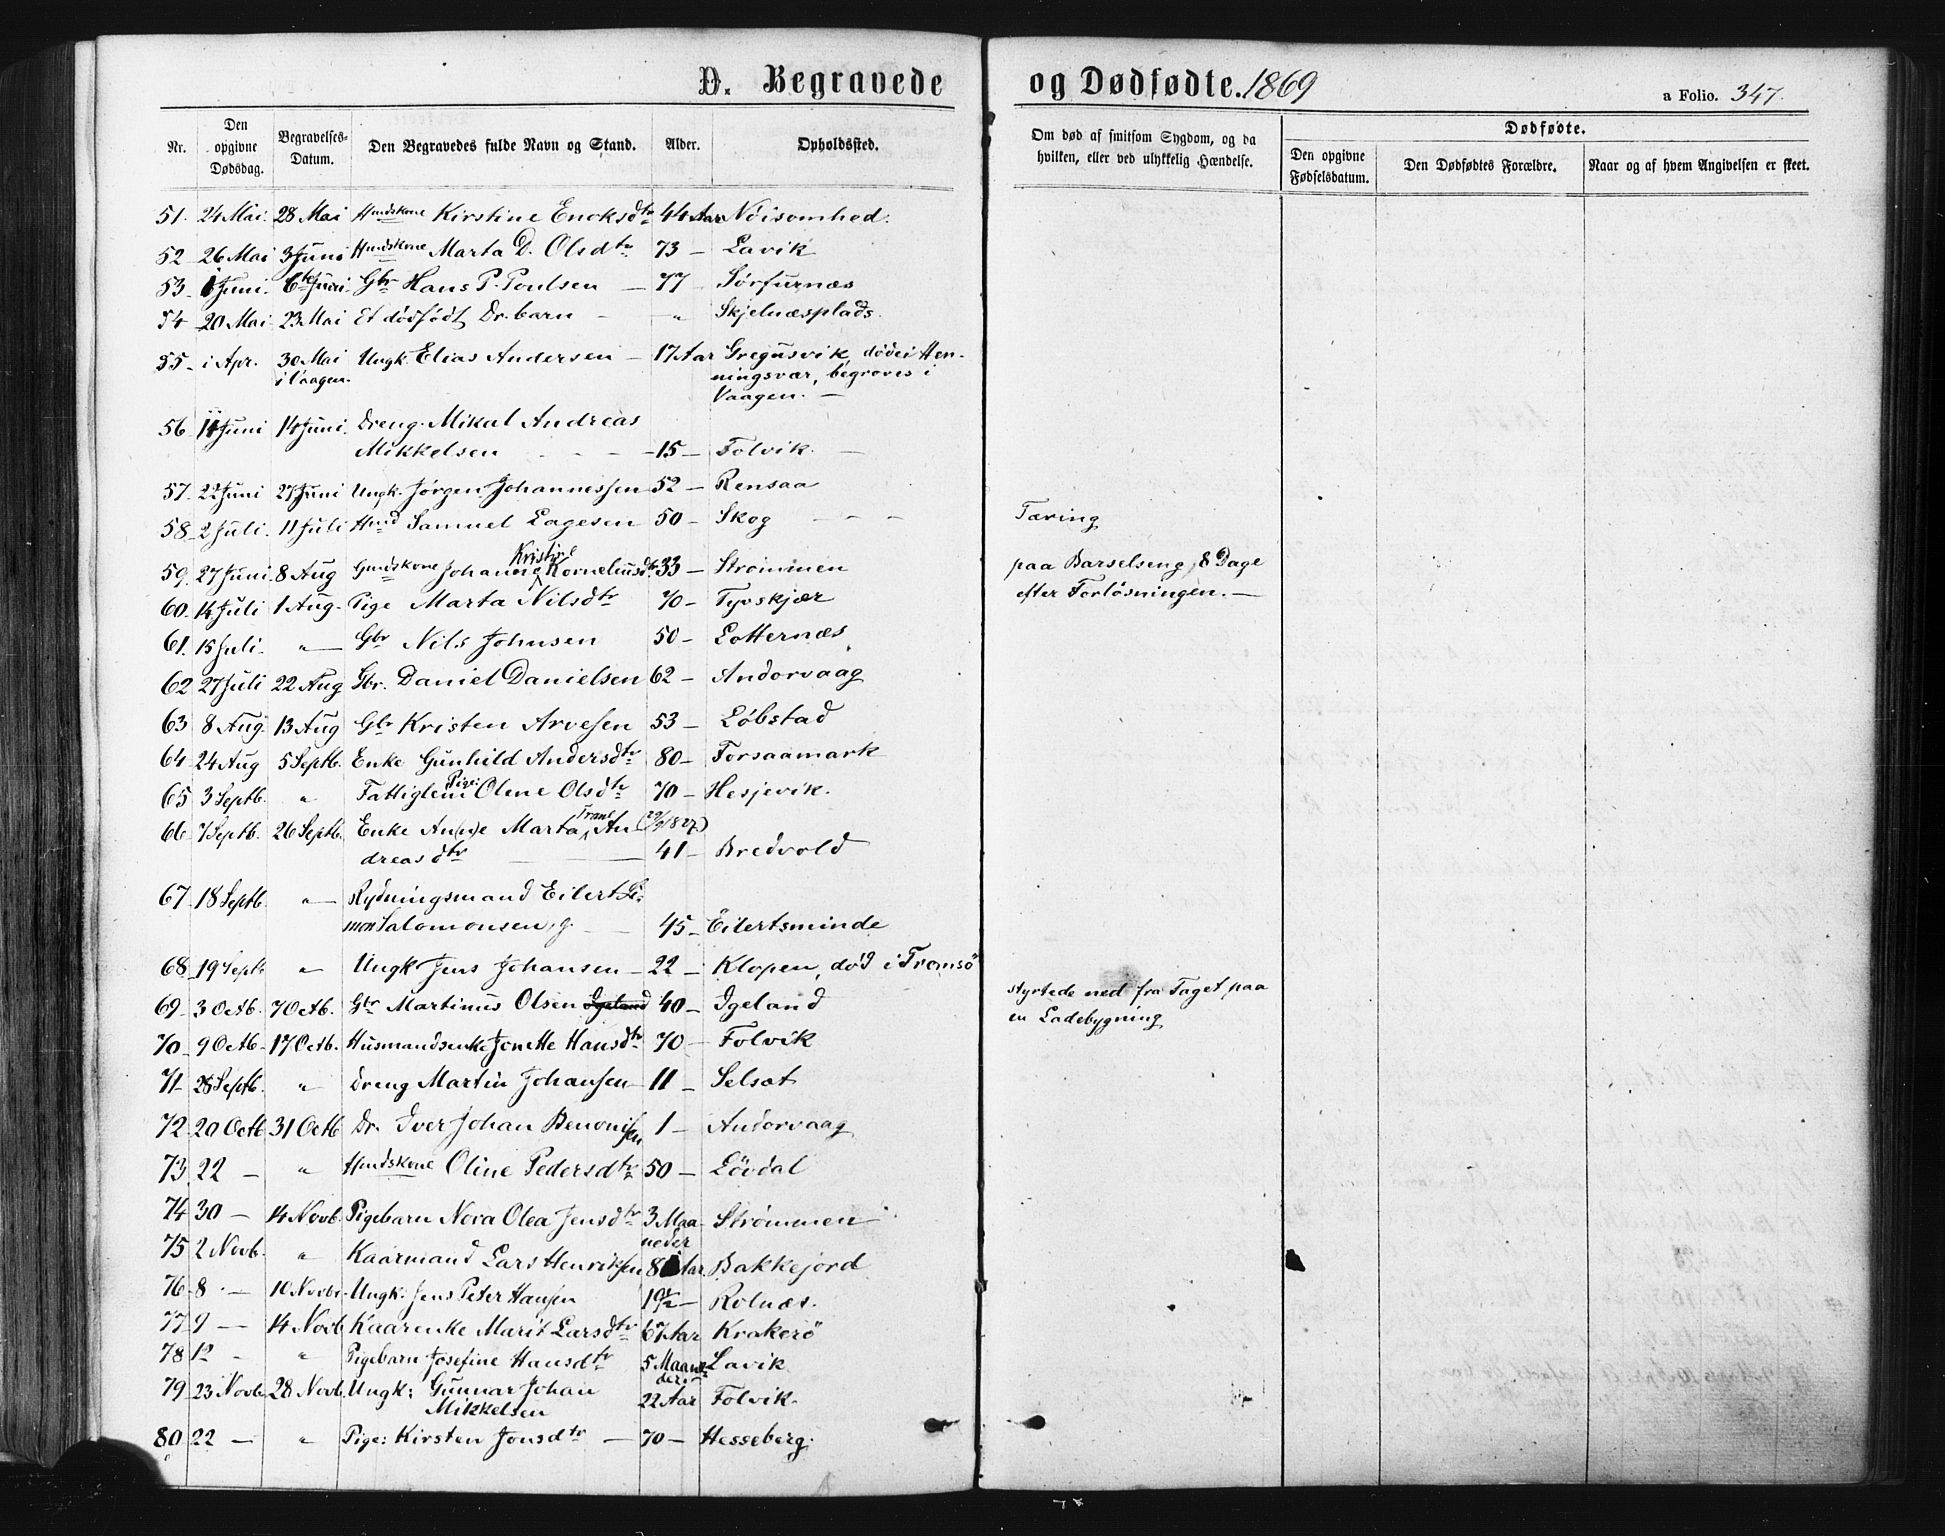 D. Begravede og Dødfødte. 1869
a Folio. 347.
Nr. Den opgivne Dødsdag. Begravelses-Datum. Den Begravedes fulde Navn og Stand. Alder. Opholdssted. Om død af smitsom Sygdom, og da hvilken, eller ved ulykkelig Hændelse. Dødfødte.
Den opgivne Fødselsdatum. Den Dødfødtes Forældre. Naar og af hvem Angivelsen er skeet.
51. 24 Mai. 28 Mai Hmdskone Kirstine Enoksdtr 44 Aar Nöisomhed.
52 26 Mai 3 Juni Hmdskone Marta D. Olsdtr 73 – Lavik
53. 1 Juni. 6te Juni. Gbr Hans P. Poulsen – 77 – Sørfurnæs
54 20 Mai 23 Mai Et dödfödt Dr. barn – „ Skjelnæsplads.
55 i Apr. 30 Mai Ungk. Elias Andersen – 17 Aar Gregusvik, döde i Hen-
i Vaagen. ningsvær, begroves i
Vaagen. –
56 11 Juni 14 Juni. Dreng. Mikal Andreas
Mikkelsen – 15 – Folvik. –
57. 22 Juni 27 Juni Ungk. Jörgen Johannessen 52 – Rensaa
58. 2 Juli. 11 Juli Hmd Samuel Lagesen 50 – Skog – – – Tæring
Kristine
59. 27 Juni 8 Aug Gmdskone Johanne Korneliusdtr 33 – Strømmen paa Barselseng, 8 Dage
60. 14 Juli 1 Aug. Pige Marta Nilsdtr 70 – Tyvskjær efter Forløsningen. –
61. 15 Juli. „ – Gbr Nils Johnsen 50 – Lotternæs
62 27 Juli 22 Aug Gbr. Daniel Danielsen 62 – Andorvaag
63 8 Aug. 13 Aug Gbr Kristen Arvesen 53 – Löbstad
64 24 Aug 5 Septb. Enke Gunhild Andersdtr 80 – Forsaamark
Pige:
65 3 Septb. „ Fattiglem Oline Olsdtr 70 – Hesjevik.
66 7 Septb. 26 Septb. Enke An(n)e Marta An
dreasdtr – 41 – Bredvold
67 18 Septb. „ – Rydningsmand Eilert Si-
mon Salomonsen, g. – 45 – Eilertsminde
68 19 Septb „ Ungk Jens Johansen – 22 – Klopen, död i Tromsö
69 3 Octb. 7 Octb. Gbr Martinus Olsen Igeland 40 – Igeland styrtede ned fra Taget paa
en Ladebygning
70 9 Octb 17 Octb. Husmandsenke Jonette Hansdtr 70 – Folvik
71 28 Septb. „ Dreng Martin Johansen 11 – Selsæt
72 20 Octb 31 Octb Dr. Iver Johan Benonisen 1 – Andorvaag
73. 22 – „ Hmdskone Oline Pedersdtr 50 – Lövdal
74 30 – 14 Novb. Pigebarn Nora Olea Jensdtr 3 Maa Strømmen
neder
75 2 Novb. „ Kaarmand Lars Henriksen Aar Bakkejord
76 8 – 10 Novbr. Ungk: Jens Peter Hansen – Rolnæs.
77 9 – 14 Novb Kaarenke Marit Larsdtr 67 Aar Krakerö
78 12 – „ Pigebarn Josefine Hansdtr 5 Maane Lavik
der –
79 23 Novb. 28 Novb. Ungk: Gunnar Johan
Mikkelsen 22 Aar Folvik.
80. 22 – „ Pige: Kirsten Jonsdtr – 70 – Hesseberg.